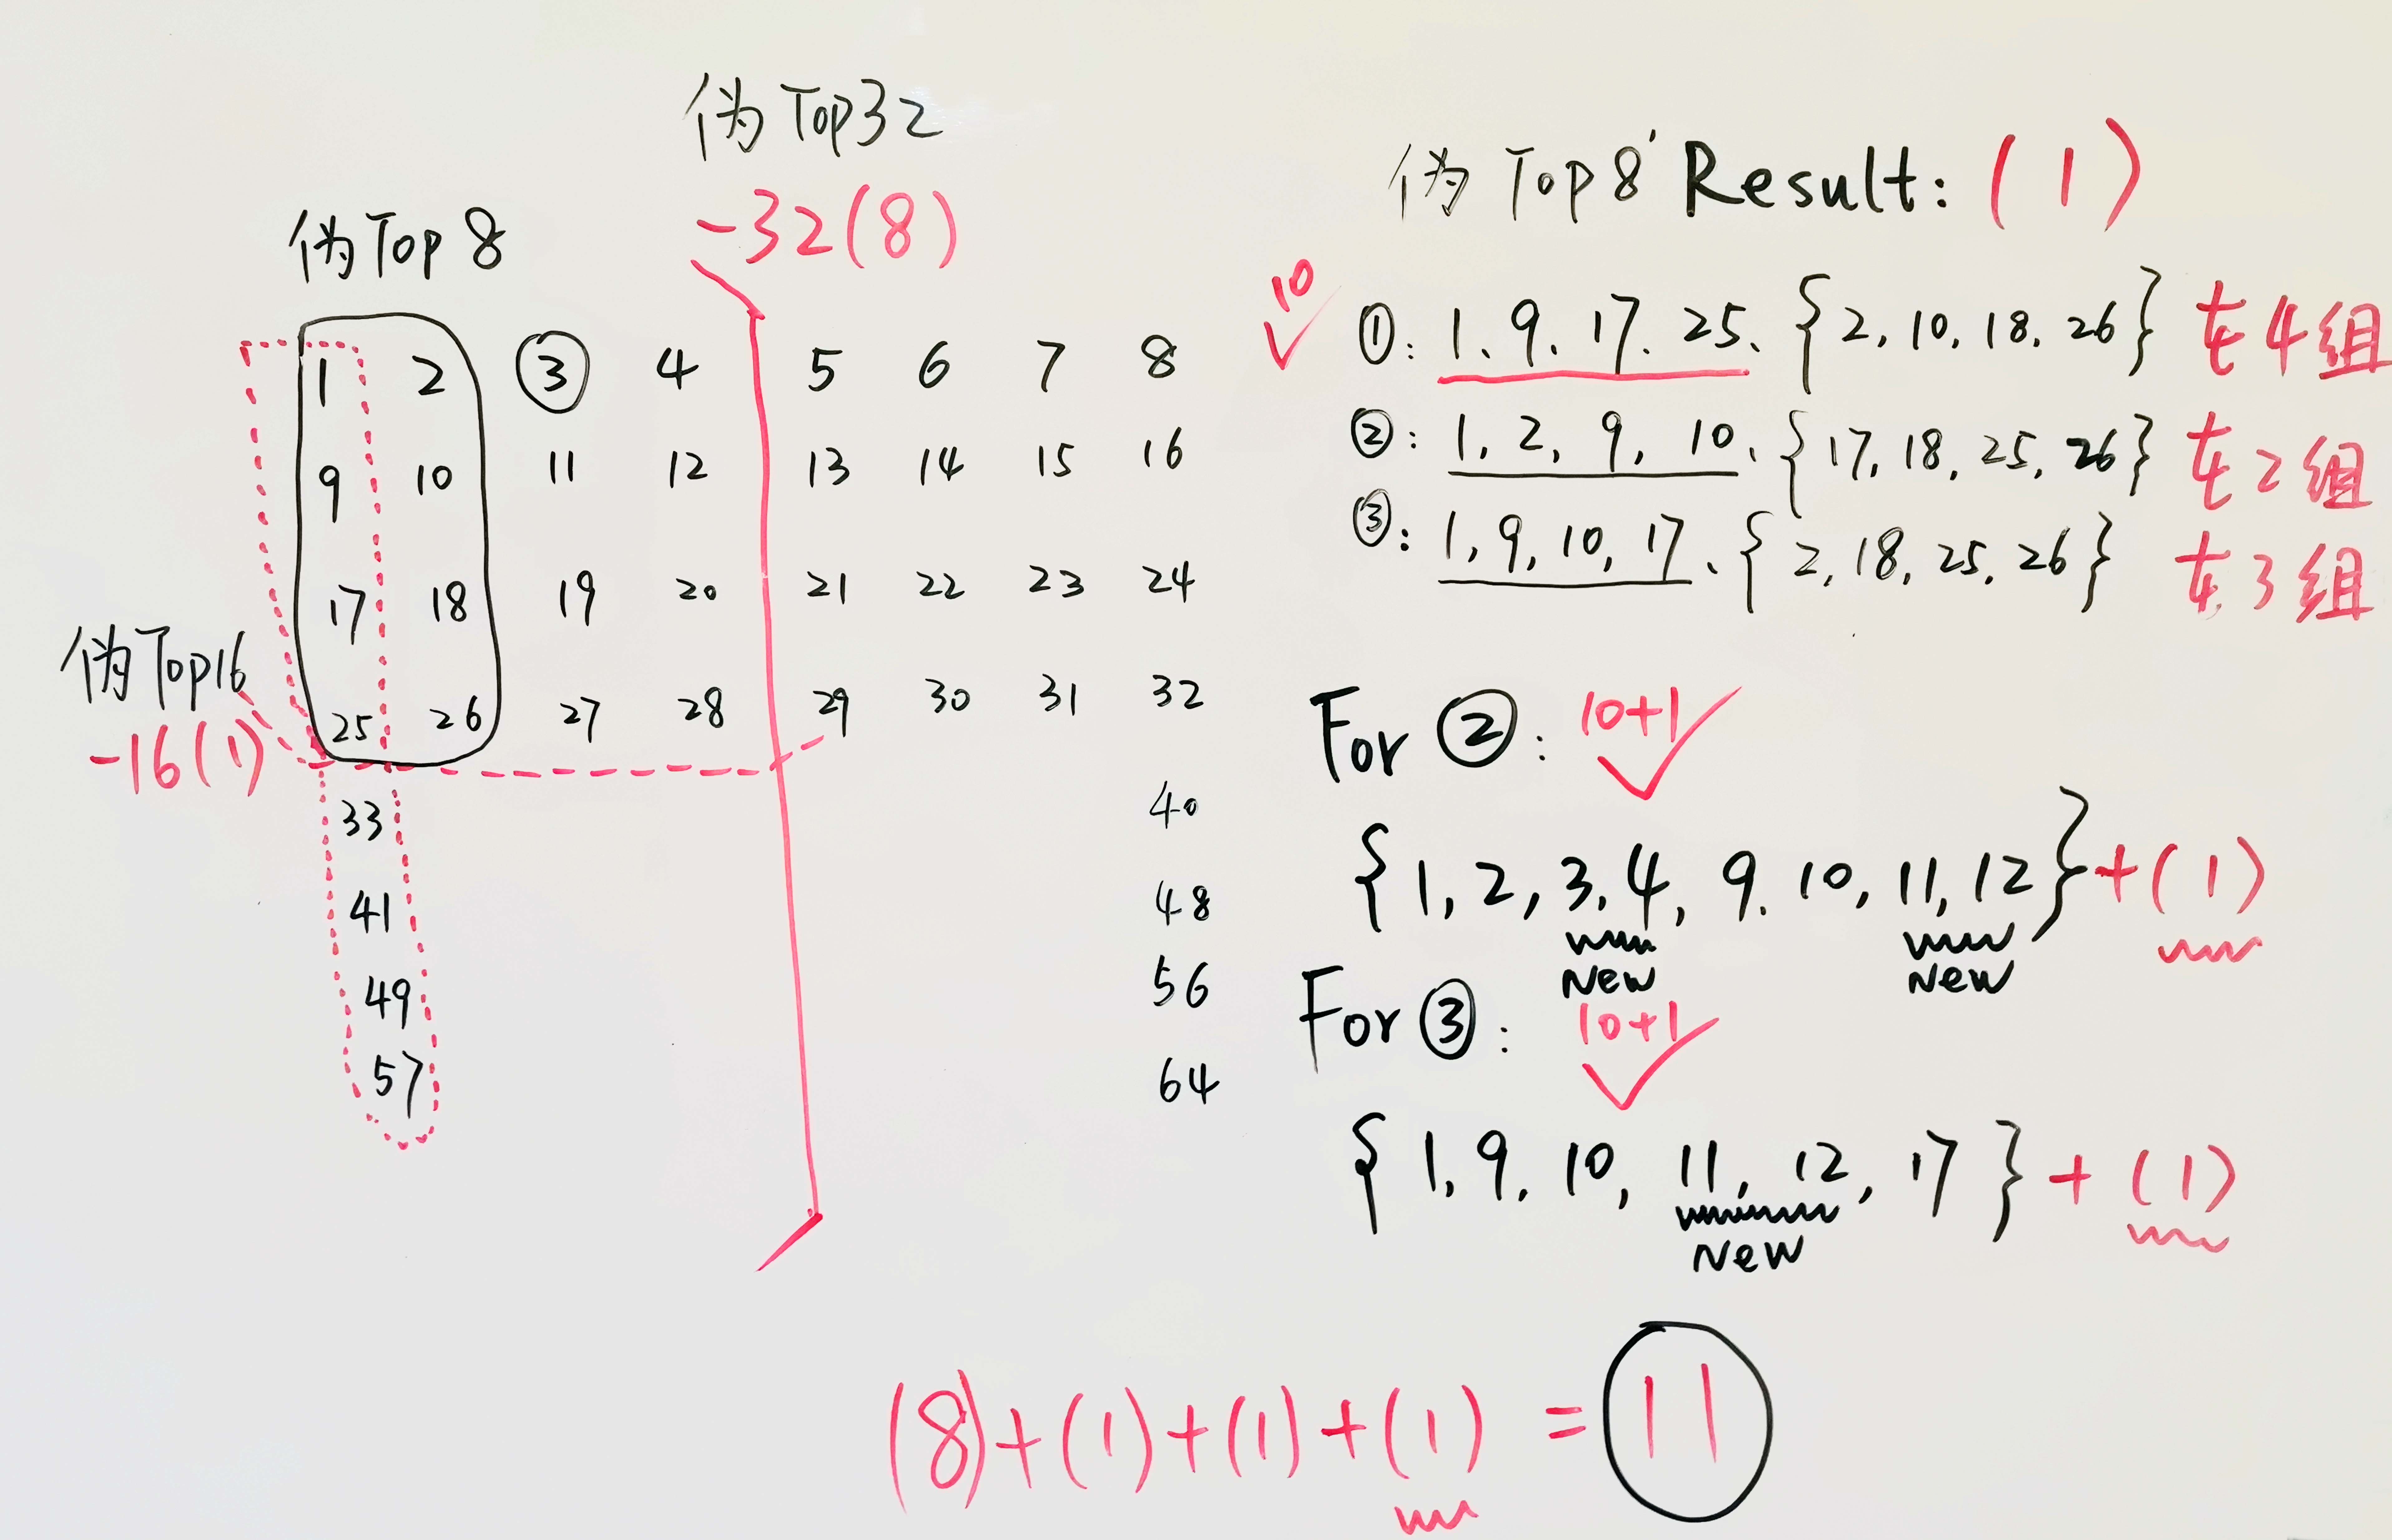 伪Top32
-32(8)
伪Top 8
1 2 ③ 4 5 6 7 8
9 10 11 12 13 14 15 16
17 18 19 20 21 22 23 24
伪Top16
-16(1)
25 26 27 28 29 30 31 32
33 40
41 48
49 56
57 64
伪 Top 8' Result: (1)
10
①: 1、9、17、25、{2, 10, 18, 26} 在4组
②: 1, 2, 9, 10、{17, 18, 25, 26} 在2组
③: 1, 9, 10, 17、{2, 18, 25, 26} 在3组
For ②: 10+1
{1, 2, 3, 4, 9, 10, 11, 12} + (1)
New New
For ③: 10+1
{1, 9, 10, 11, 12, 17} + (1)
New
(8)+(1)+(1)+(1) = 11